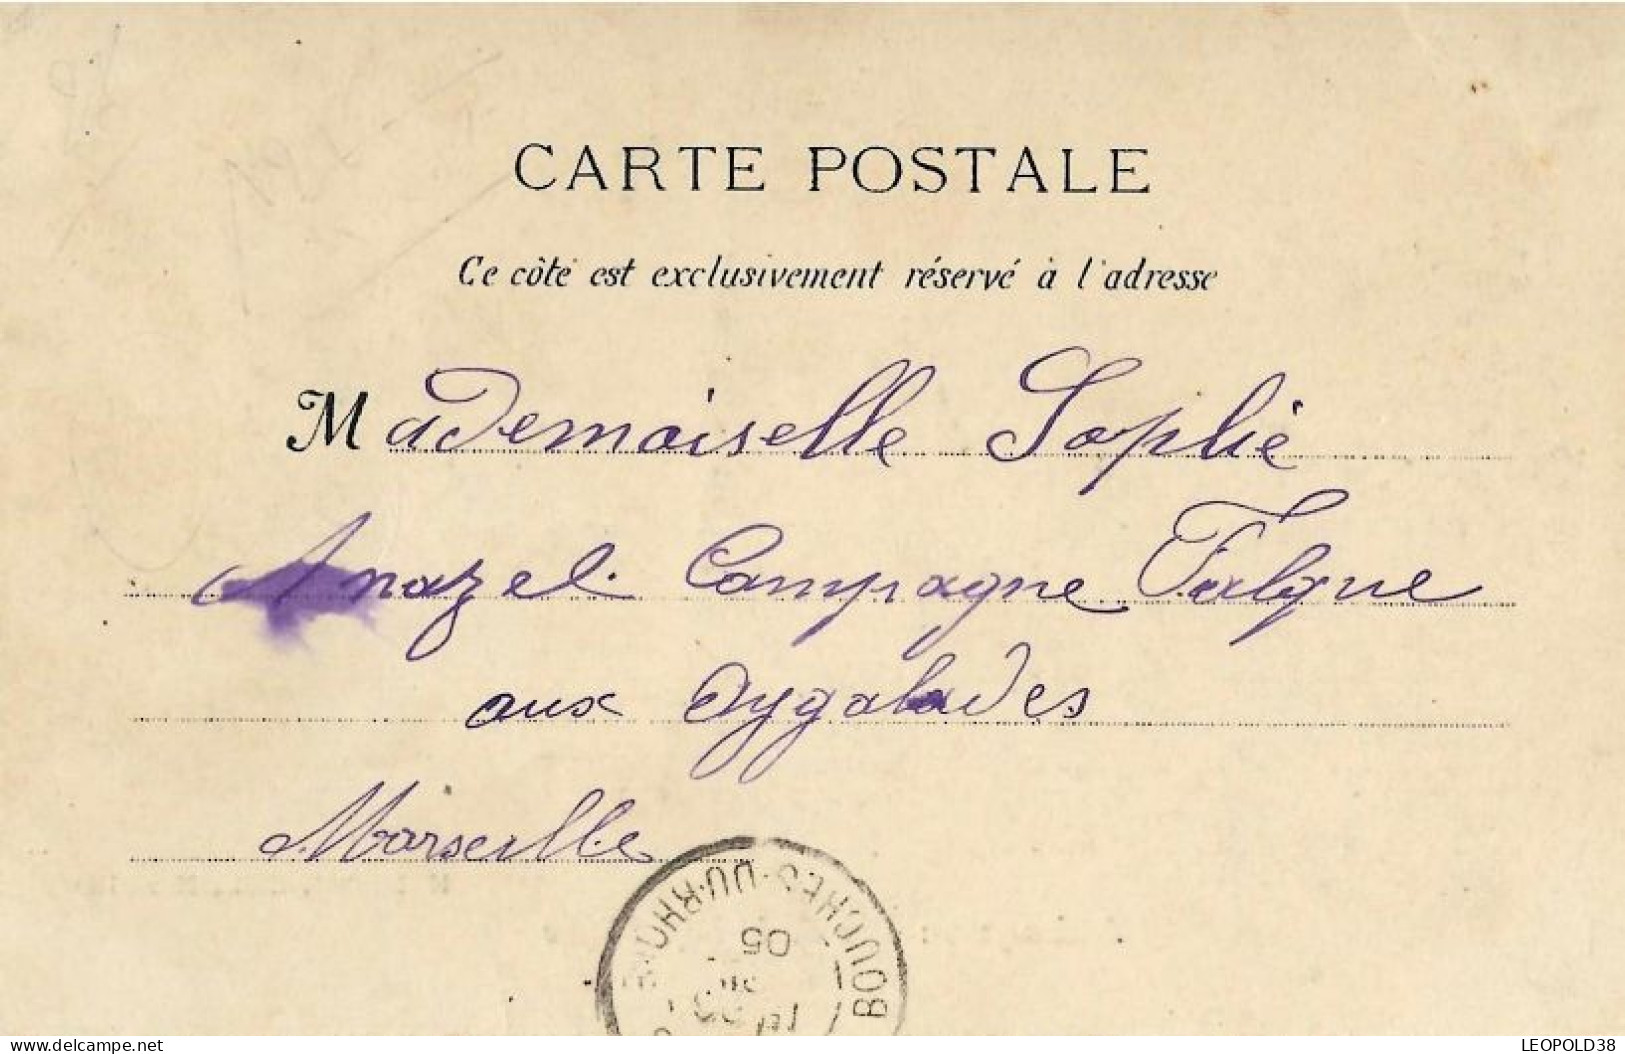 CARTE POSTALE
Ce côté est exclusivement réservé à l'adresse
Mademoiselle Sophie
Anazel. Campagne Falgue
aux Aygalades
Marseille
BOUCHES-DU-RHONE
05
delcampe.net
LEOPOLD38